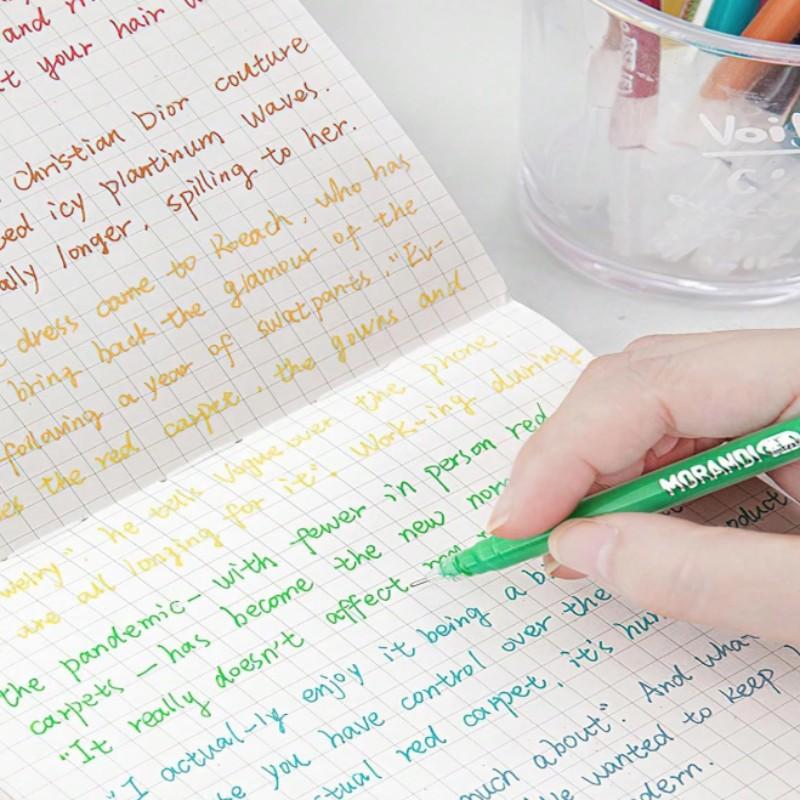 and
t your hair
Christian Dior couture
ed icy plantinum waves.
ally longer, spilling to her.
dress came to Roeach, who has
bring back the glamour of the
following a year of swatpants. "Ev-
es the red carpet, the gowns and
welry". he tells Vogue over the phone
are all longing for it". Work-ing during
the pandemic- with fewer in person red
carpets - has become the new nor
"It really doesn't affect
"I actual-ly enjoy it being a b
se you have control over the
tual red carpet, it's hu
much about". And what
We wanted to keep
dern.
MORANDI
oduct
Voi